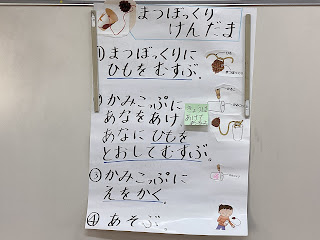 まつぼっくり
けんだま
①まつぼっくりに
ひもをむすぶ。
②かみこっぷに
あなをあけ
あなにひもを
とおしてむすぶ。
③かみこっぷに
えをかく
④あそぶ。